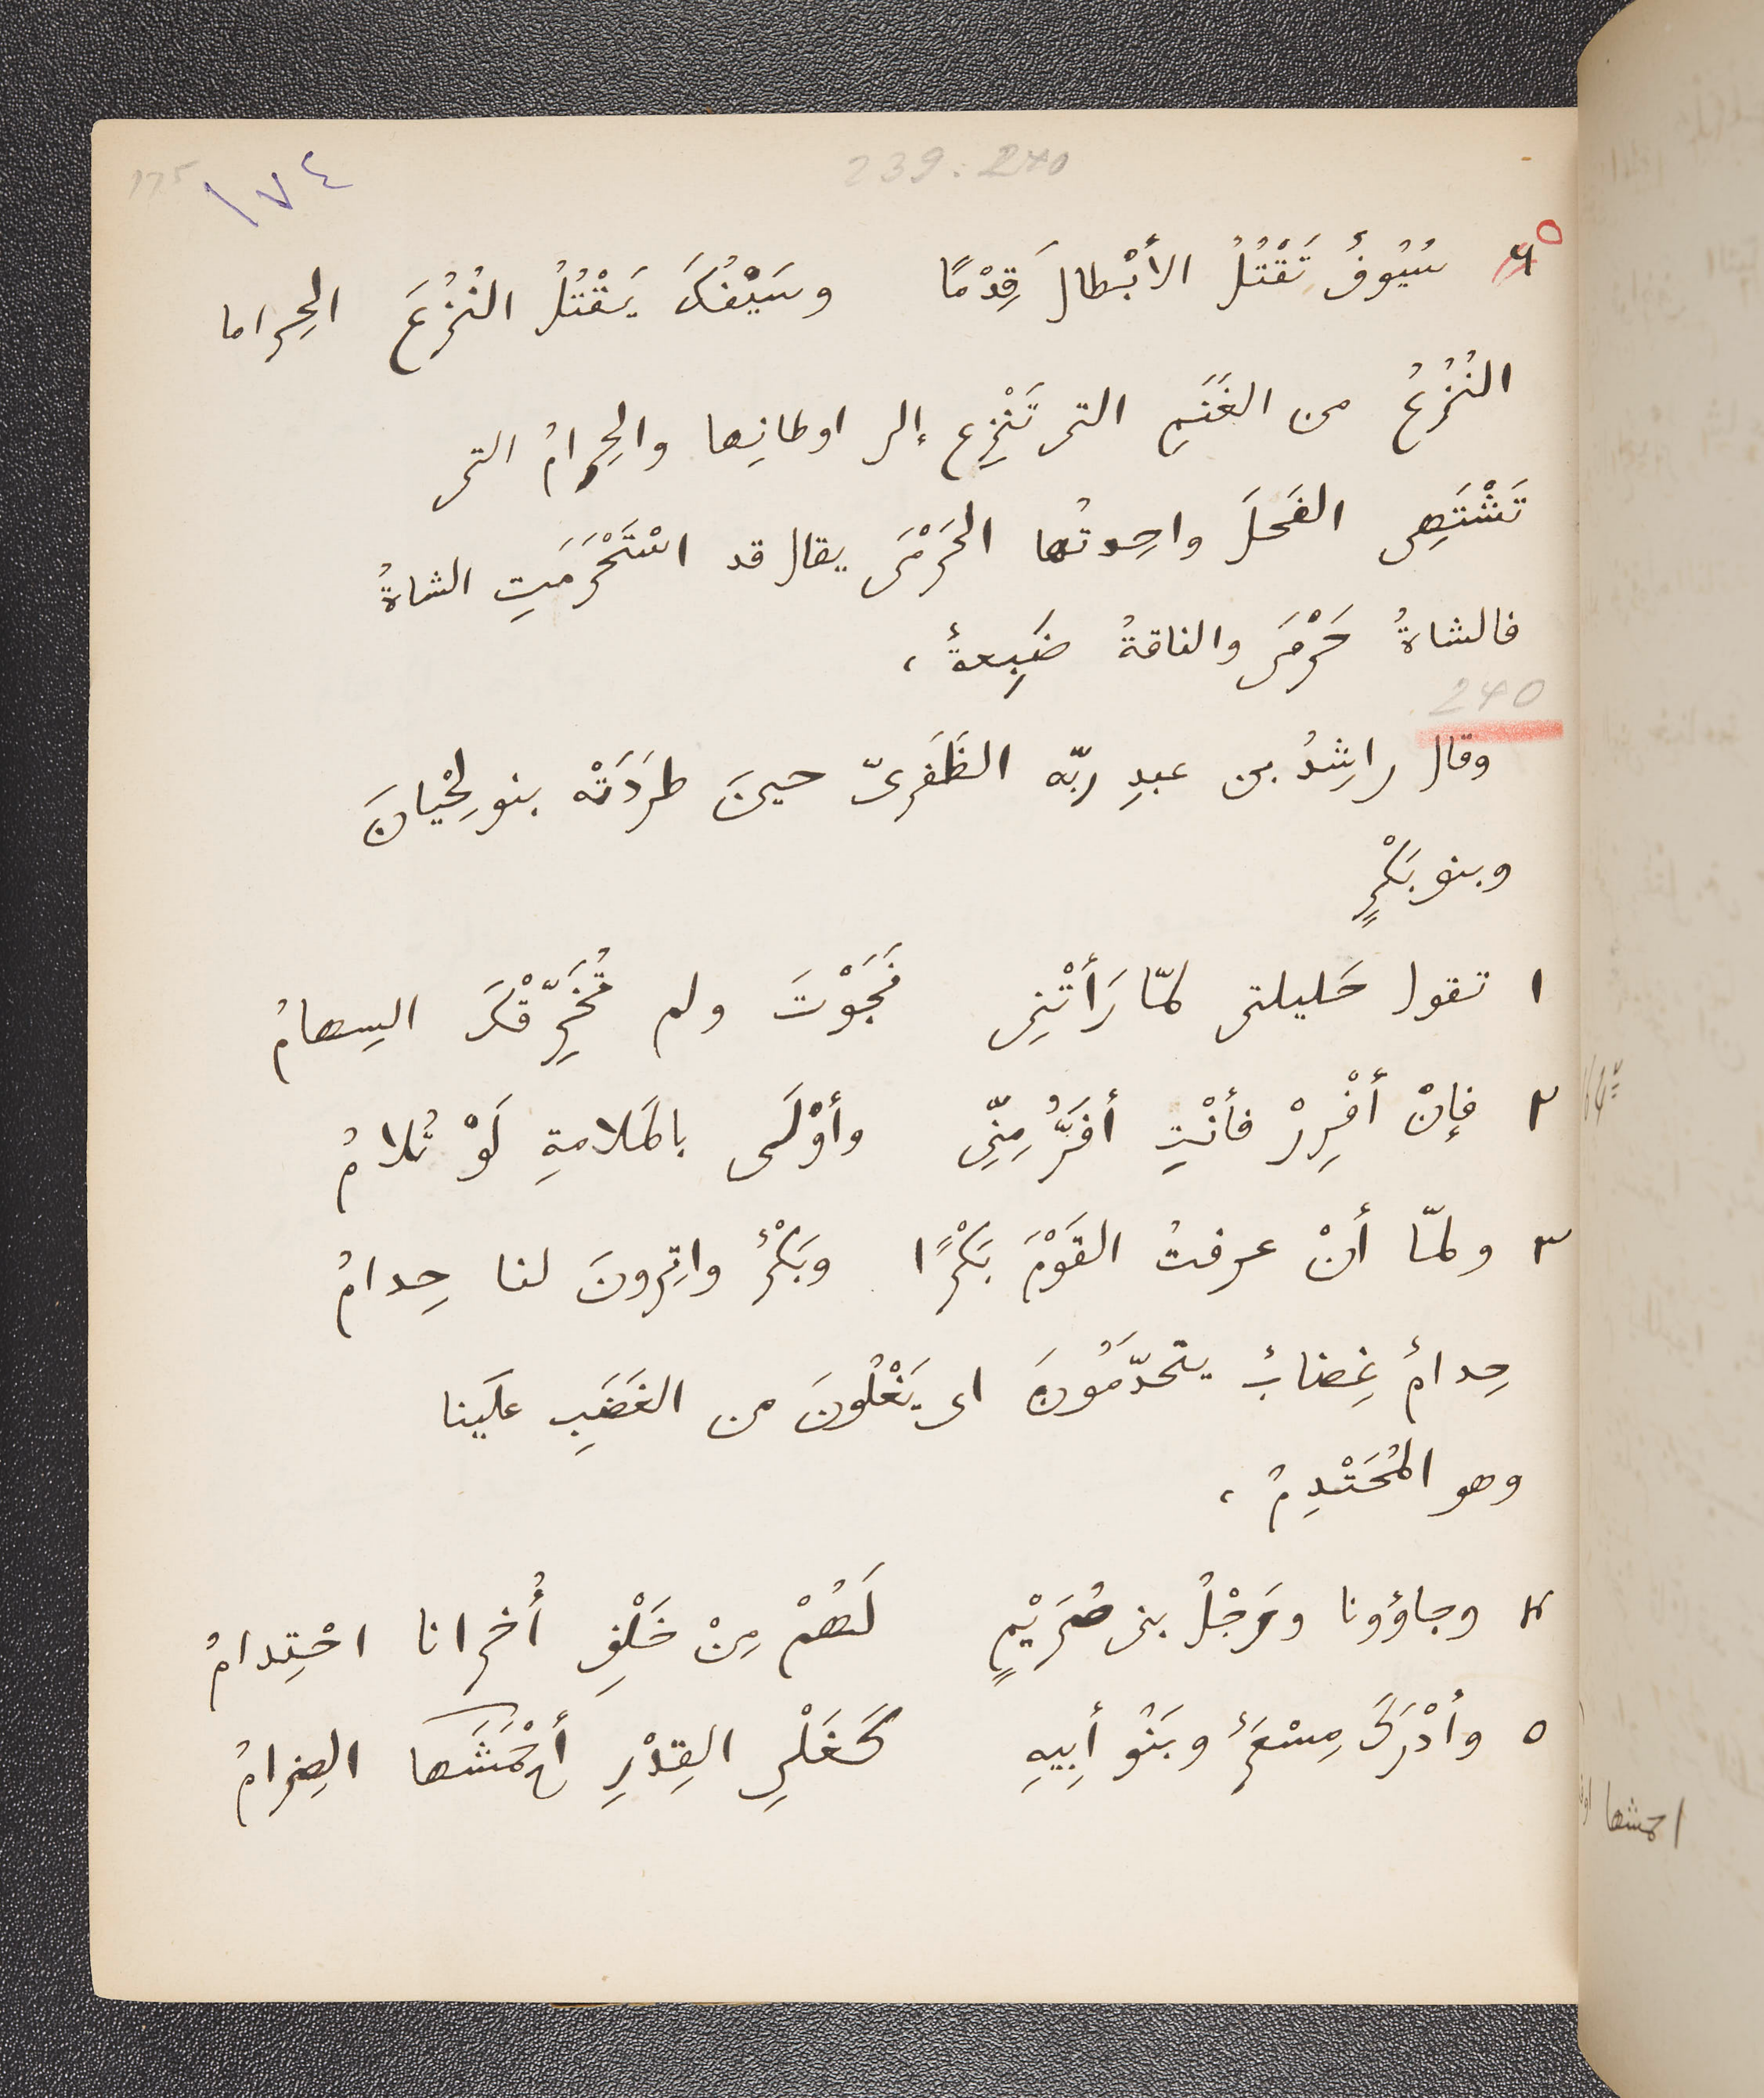 239 : 240
١٧٤
175
٥
٦ سُيُوفٌ تَقْتُلُ الأبْطالَ قِدْمًا وسَيْفُكَ يَقْتُلُ النُزُعَ الحِراما
النُزُعُ من الغَنَمِ التى تَنْزِع إلى اوطانِها والحِرامُ التى
تَشْتَهِى الفَحلَ واحِدتُها الحَرْمَى يقال قد اسْتَحْرَمَتِ الشاةُ
فالشاةُ حَرْمَى والناقةُ ضَبِعةٌ ،
240
وقال راشِدُ بن عبدِ ربّه الظَفَرىّ حينَ طرَدَتْه بنو لِحْيانَ
وبنو بَكْرٍ
١ تقول حَليلتى لمّا رَأتْنِى نَجَوْتَ ولم تُخَرِّقْكَ السِهامُ
٢ فإنْ أفْرِرْ فأنْتِ أفَرُّ مِنّى وأوْلَى بالمَلامةِ لَوْ تُلامُ
٣ ولمّا أنْ عرفتُ القَوْمَ بَكْرًا وبَكْرٌ واتِرونَ لنا حِدامُ
حِدامٌ غِضابٌ يتحدّمُونَ اى يَغْلُونَ من الغَضَبِ علَينا
وهو المُحْتَدِمُ ،
٤ وجاؤونا ورَجْلُ بنى صُرَيْمٍ لَهُمْ مِنْ خَلْفِ أُخرانا احْتِدامُ
٥ وأدْرَكَ مِسْعَرٌ وبَنُو أبِيهِ كَغَلْىِ القِدْرِ أحْمَشَها الضِرامُ
احمشها